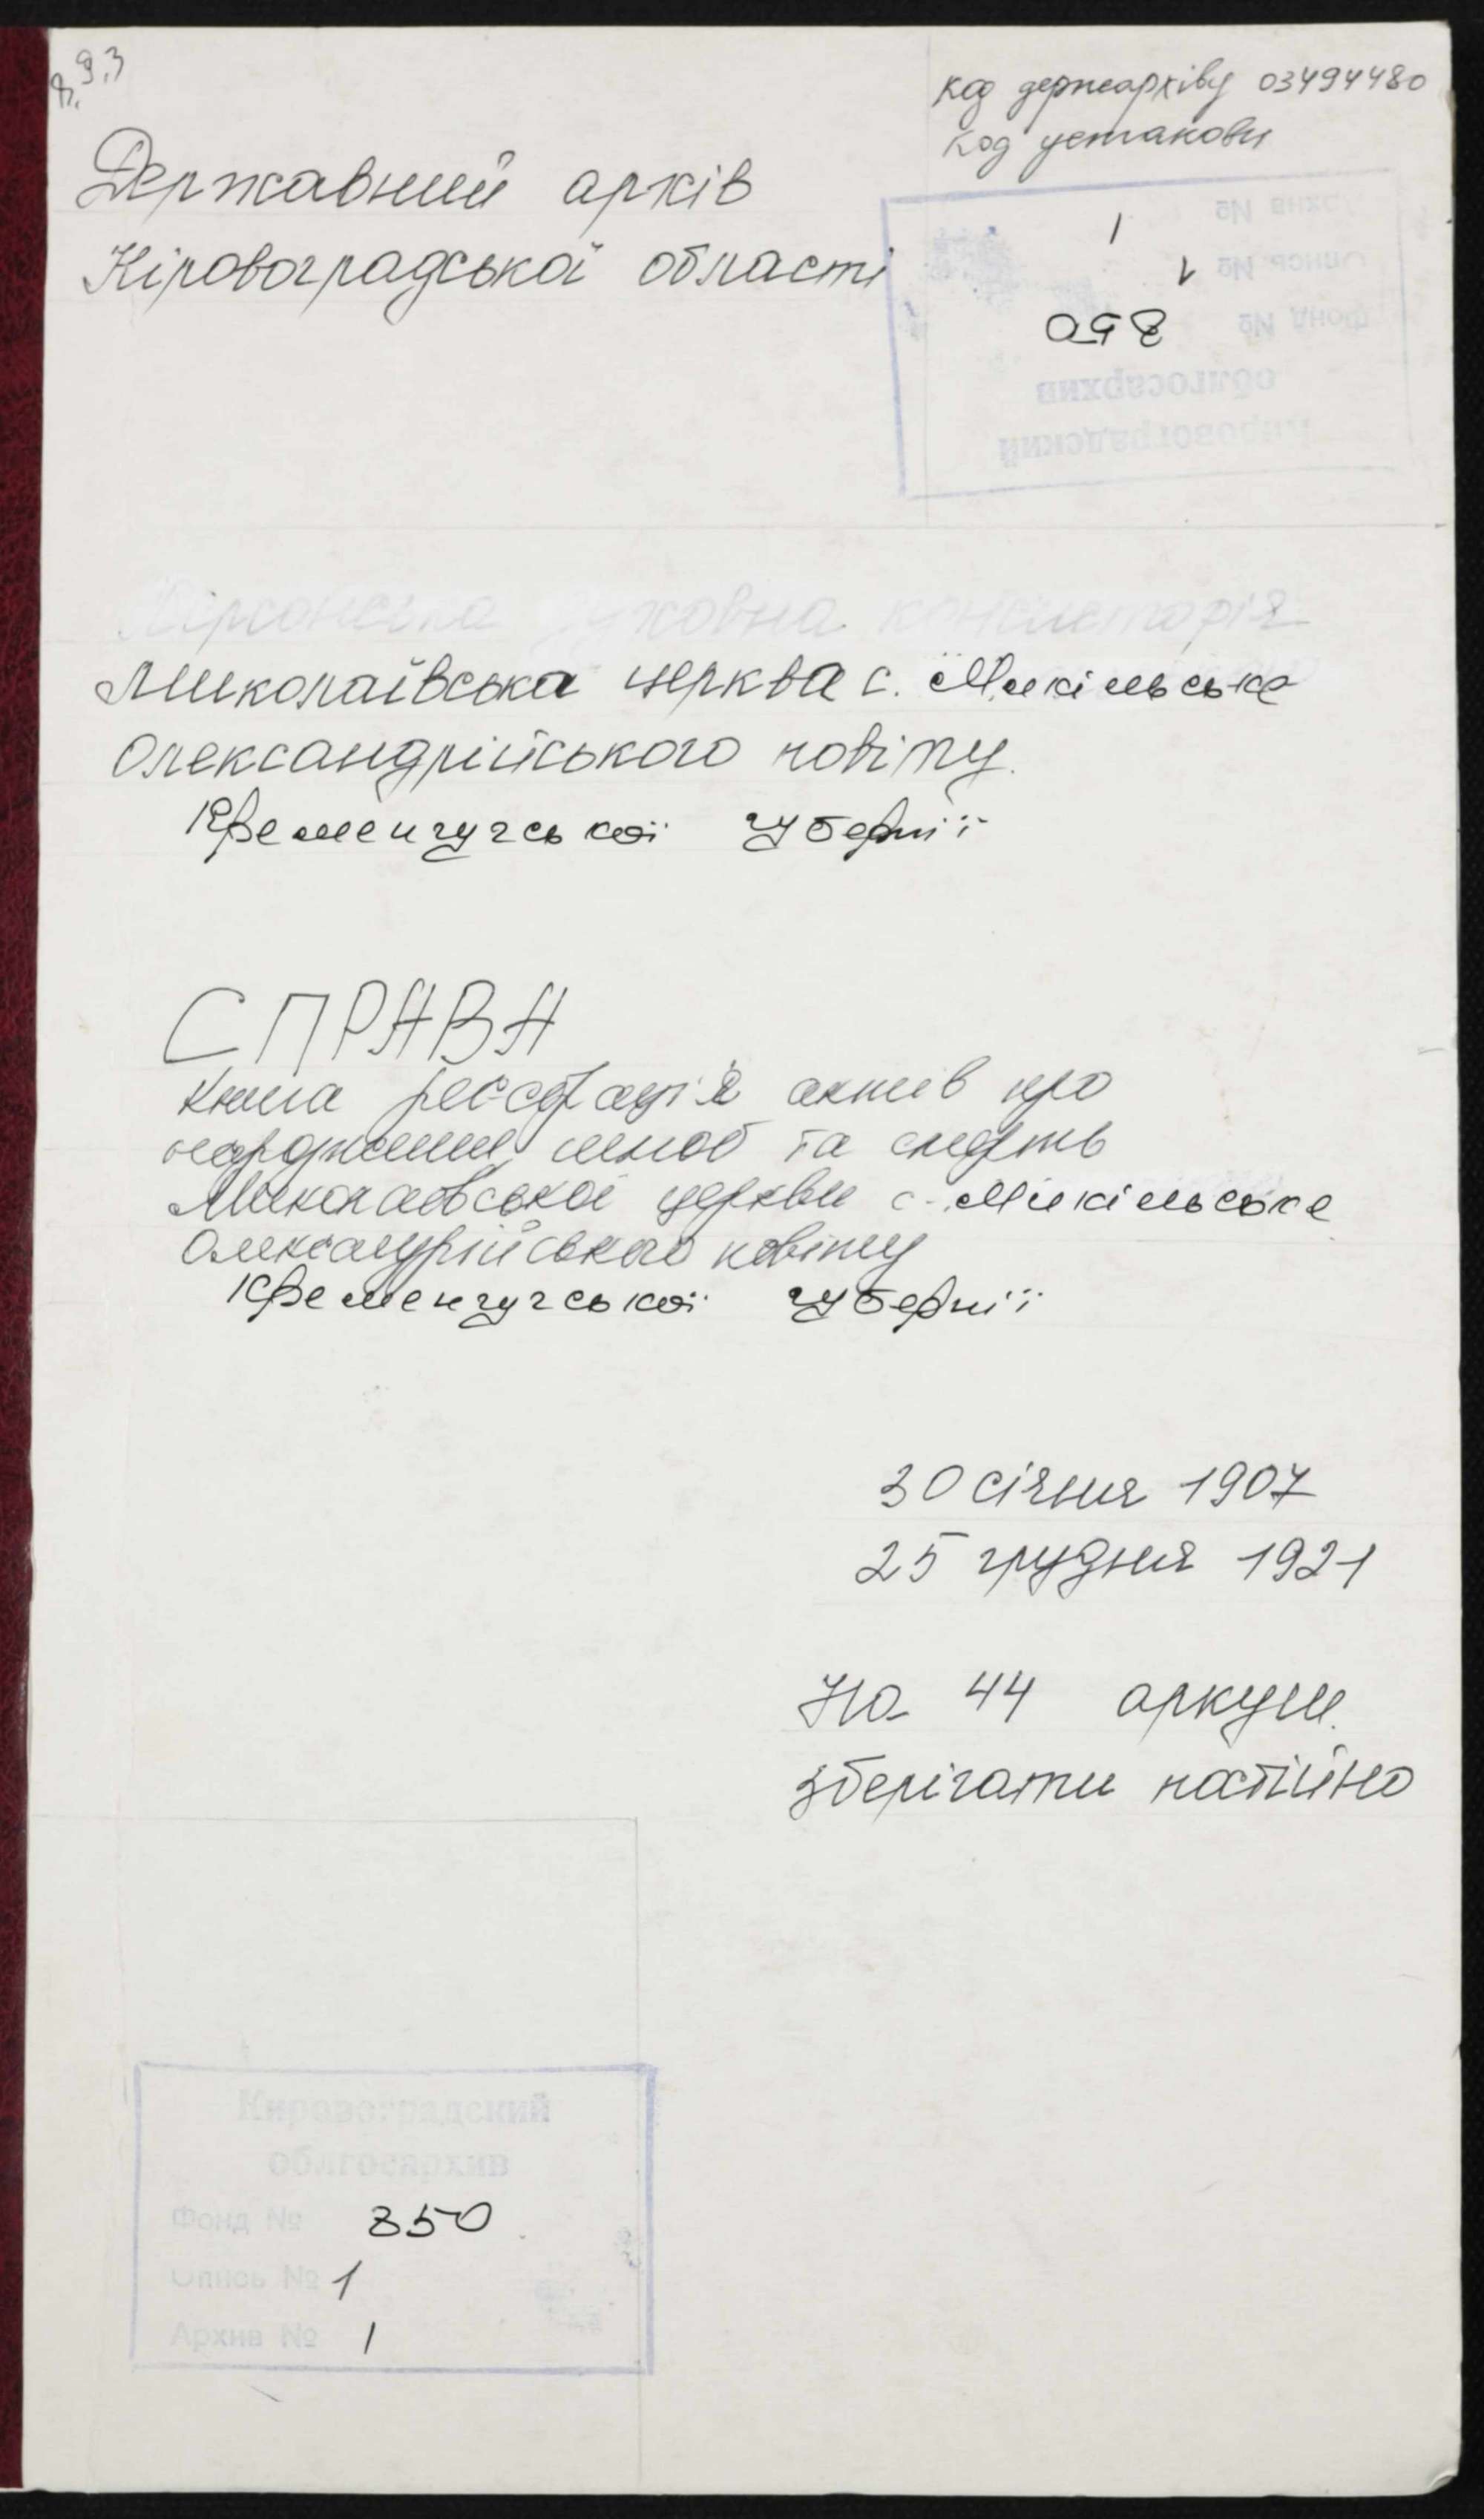 8.9.3
код держархіву 03494480
код установи
Державний архів
Кіровоградської області
Архив № 1
Опись № 1
Фонд № 850
облгосархив
Кировоградский
Херсонська духовна консисторія
Миколаївська церква с. Микільське
Олександрійського повіту.
Кременчугської губернії
СПРАВА
Книга реєстрації актів про
народження, шлюб та смерть
Миколаївської церкви с. Микільське
Олександрійського повіту
Кременчугської губернії
30 січня 1907
25 грудня 1921
На 44 аркуш.
зберігати постійно
Кировоградский
облгосархив
Фонд № 850
Опись № 1
Архив № 1